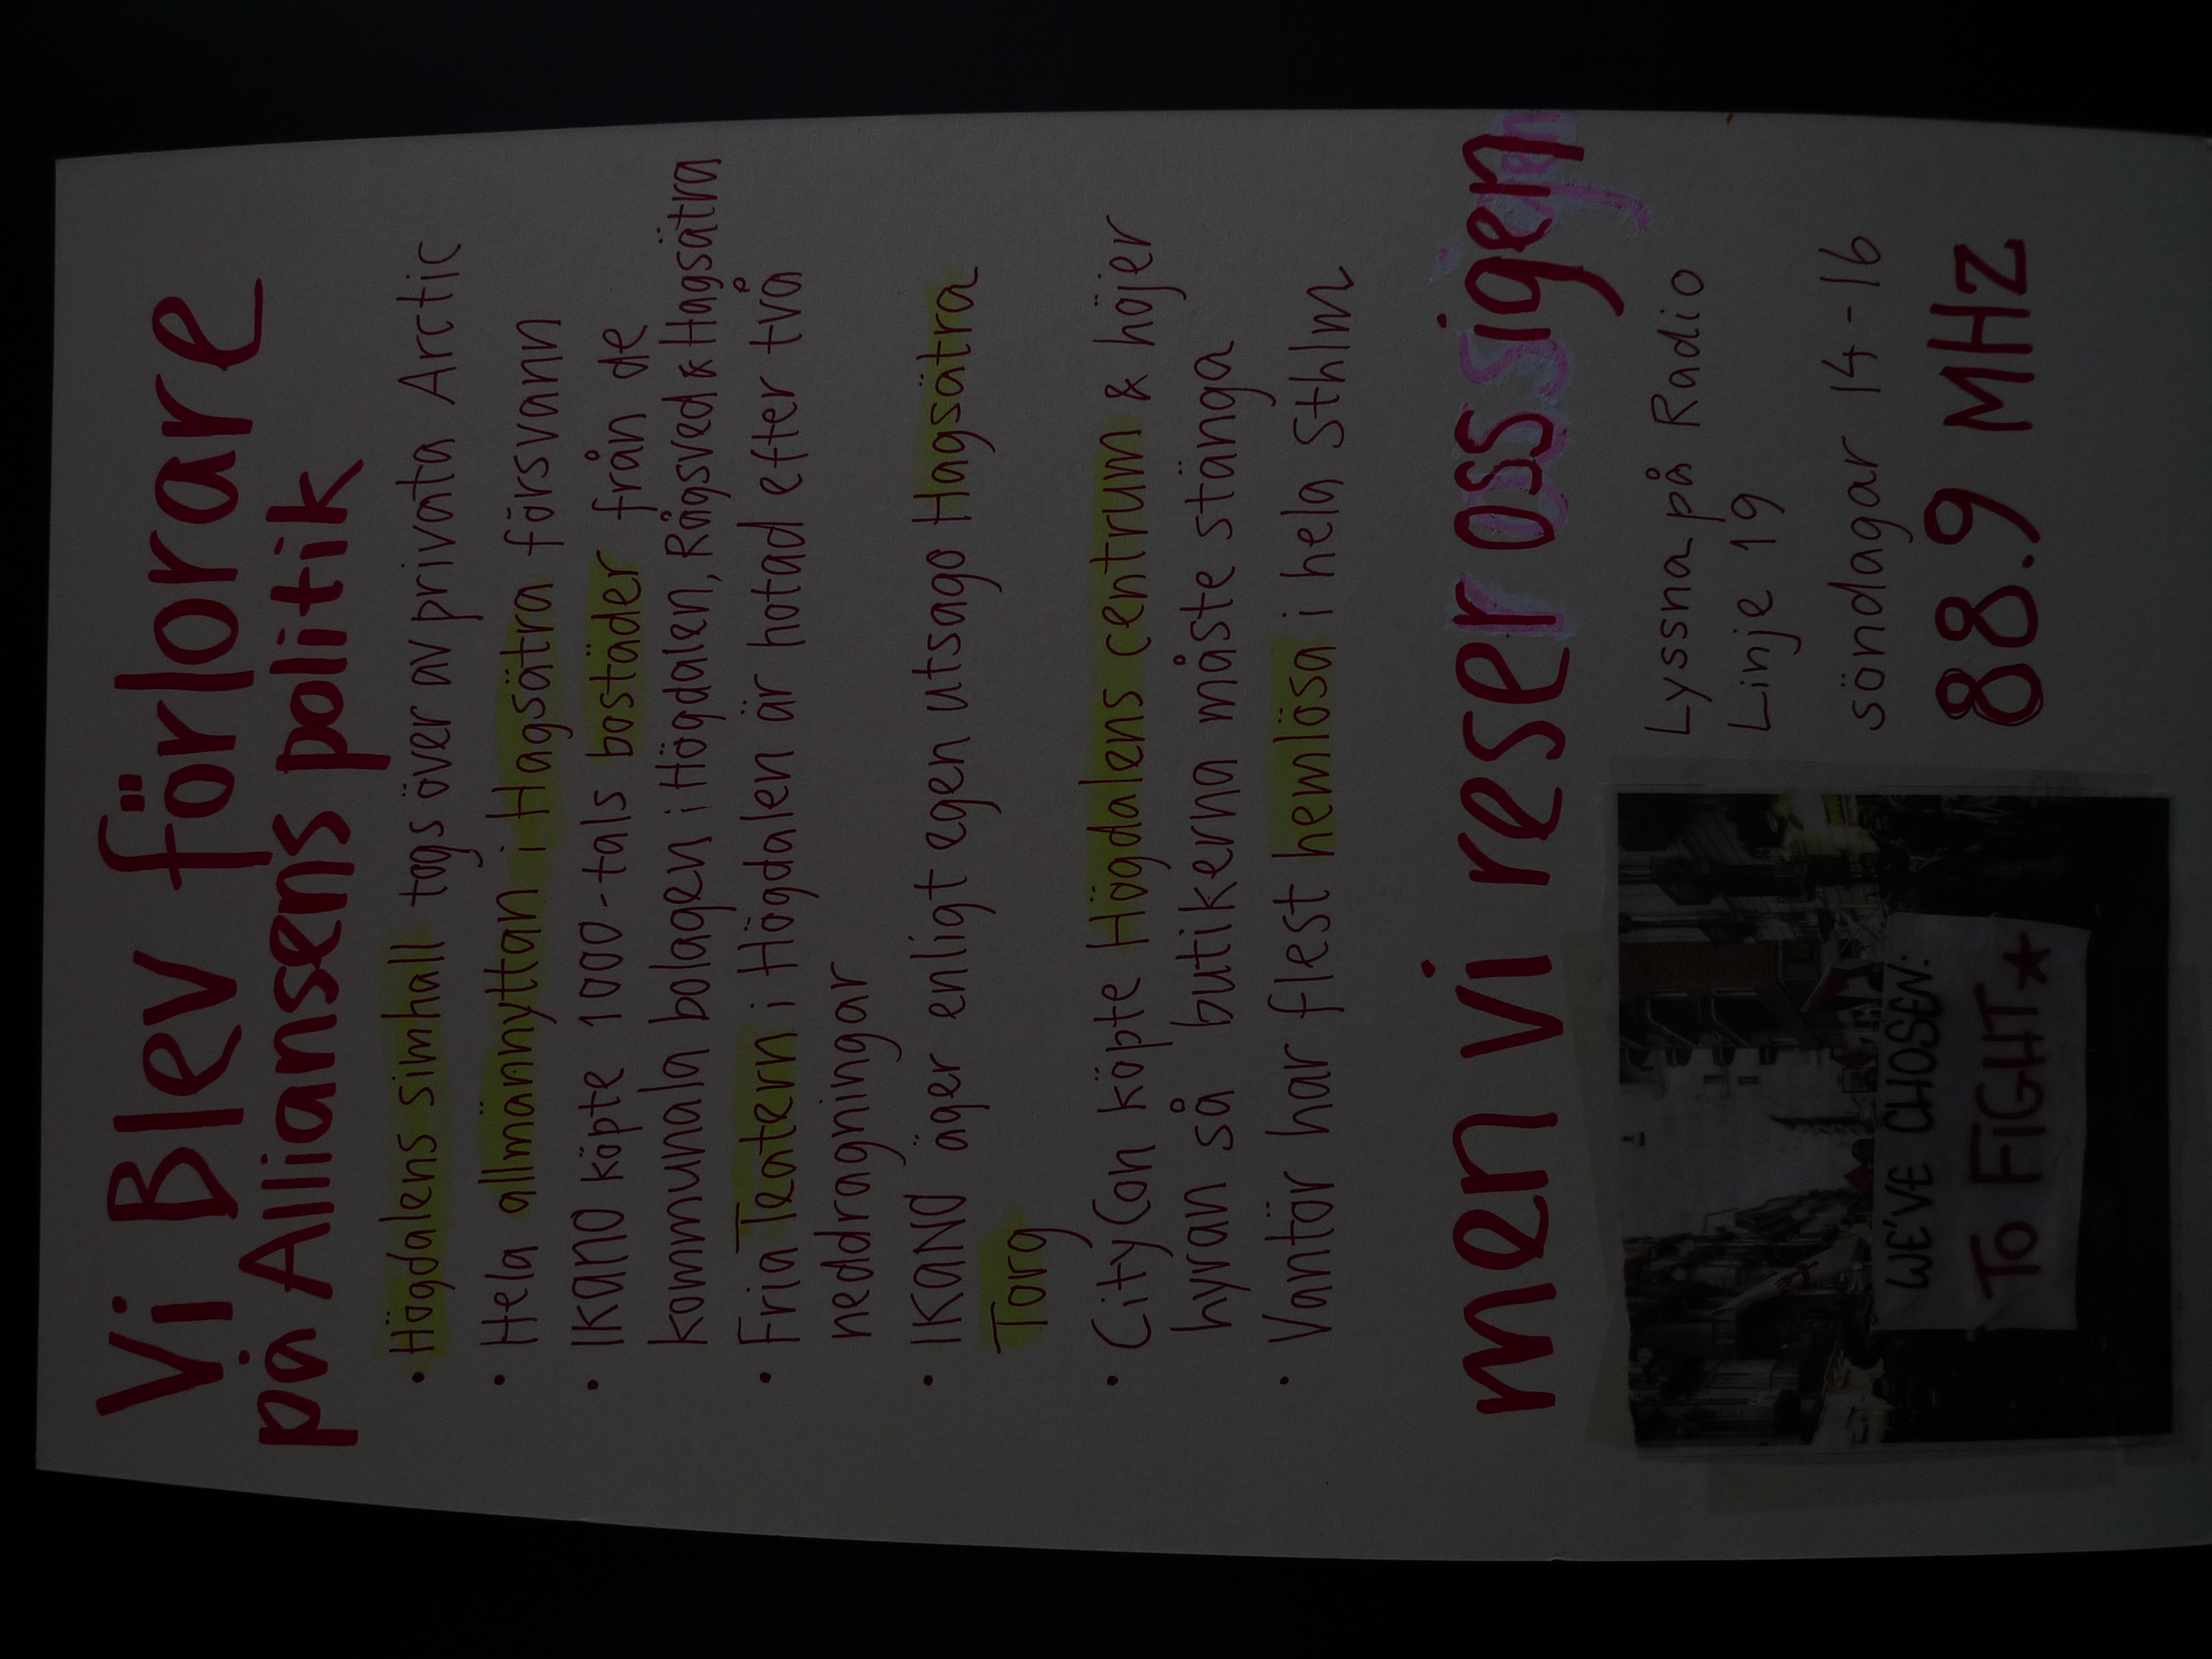 Vi Blev förlorare
på Alliansens politik
• Högdalens simhall togs över av privata Arctic
• Hela allmännyttan i Hagsätra försvann
• IKANO köpte 1000-tals bostäder från de
kommunala bolagen i Högdalen, Rågsved & Hagsätra
• Fria Teatern i Högdalen är hotad efter två
neddragningar
• IKANO äger enligt egen utsago Hagsätra
Torg
• CityCon köpte Högdalens centrum & höjer
hyran så butikerna måste stänga
• Vantör har flest hemlösa i hela Sthlm
men vi reser oss igen
Lyssna på Radio
Linje 19
söndagar 14-16
88.9 MHz
WE'VE CHOSEN:
TO FIGHT★